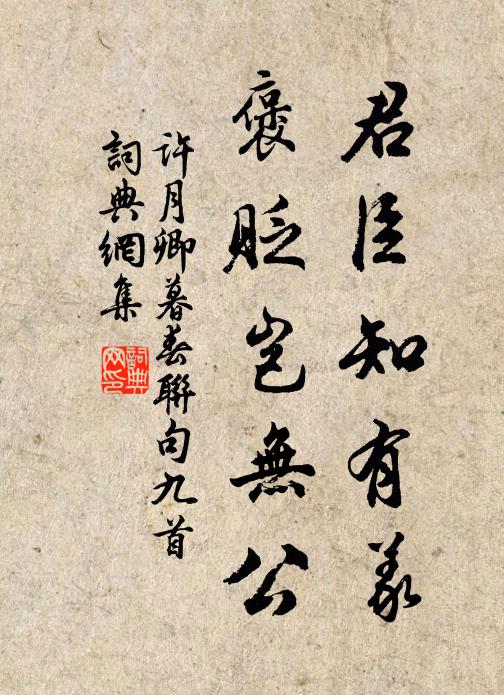 君臣知有義
褒貶豈無公
許月卿暮春聯句九首
詞典網集
詞典网印